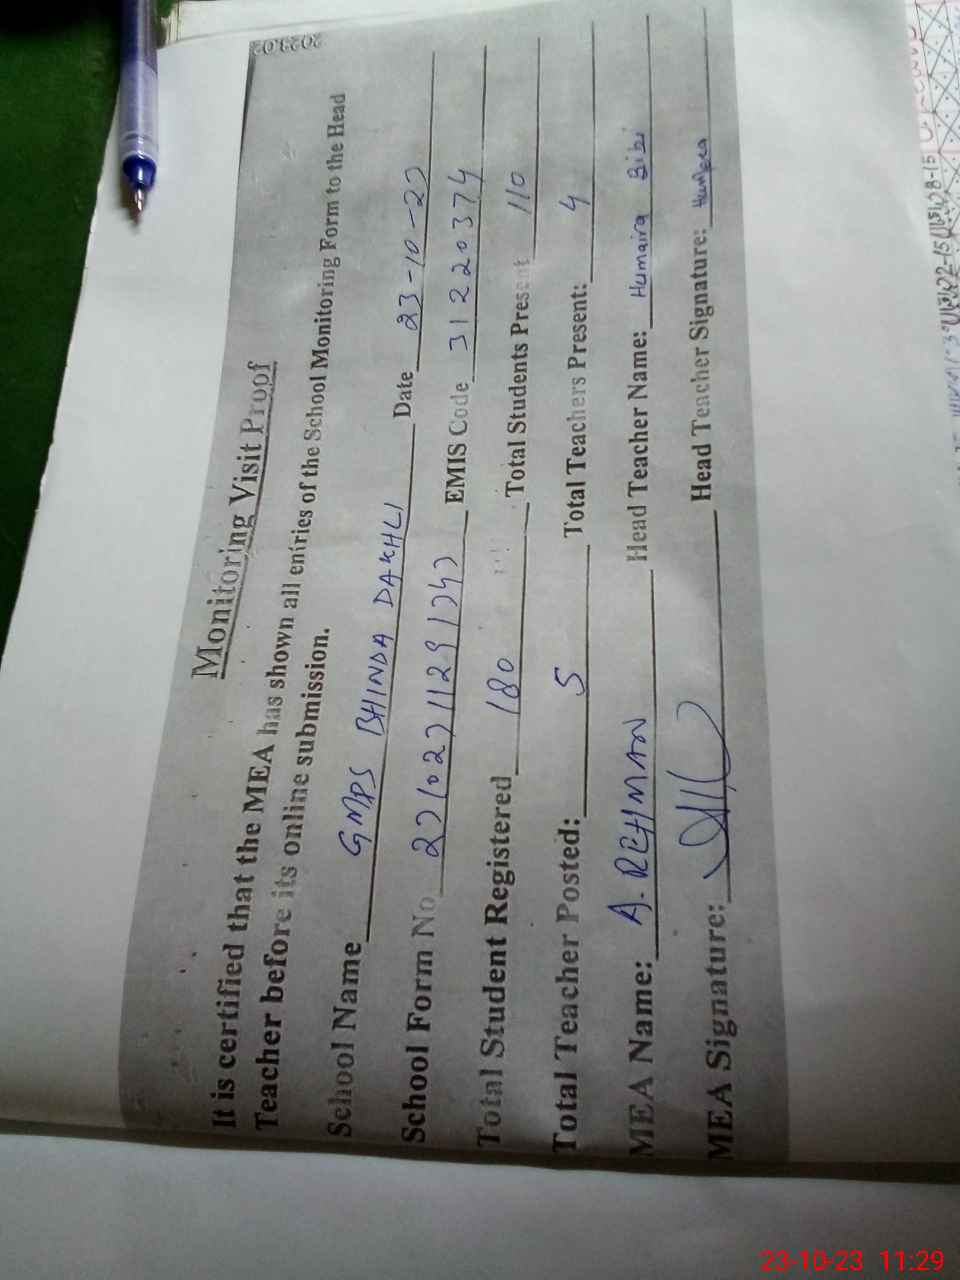 Monitoring Visit Proof
It is certified that the MEA has shown all entries of the School Monitoring Form to the Head
Teacher before its online submission.
School Name GMPS BHINDA DAKHLI Date 23-10-23
School Form No EMIS Code 31220374
Total Student Registered 180 Total Students Present 110
Total Teacher Posted: 5 Total Teachers Present: 4
MEA Name: A. REHMAN Head Teacher Name: Humaira Bibi
MEA Signature: Head Teacher Signature: Humaira
23-10-23 11:29